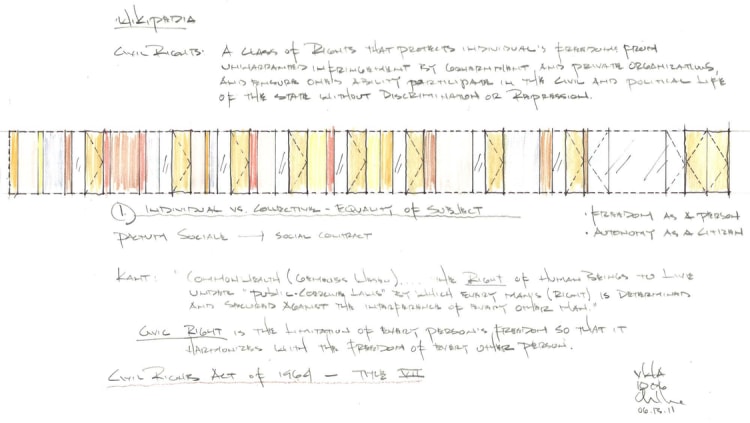 Wikipedia
Civil Rights: A class of Rights that protects individual's freedom from
unwarranted infringement by government and private organizations,
and ensure one's ability participate in the civil and political life
of the state without Discrimination or Repression.
① Individual vs. Collective - Equality of Subject
Pactum Sociale → social contract
• Freedom as a person
• Autonomy as a citizen
Kant: "Commonwealth ..... the Right of Human Beings to live
"public-coercive laws" by which every man's (Right) is determined
and secured against the interference of every other man."
Civil Right is the limitation of every person's freedom so that it
harmonizes with the freedom of every other person.
Civil Rights Act of 1964 - Title VII
06.13.11